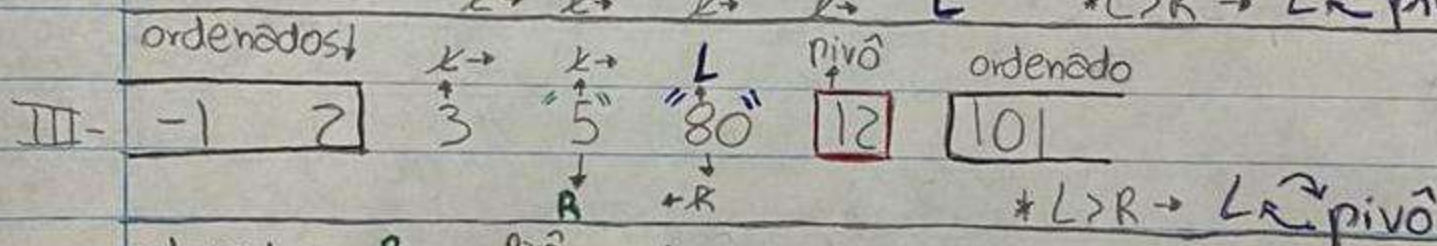 L * L>R → L
ordenados↓ L→ L→ L pivô ordenado
III- -1 2 3 "5" "80" 12 101
R ←R * L>R → L pivô